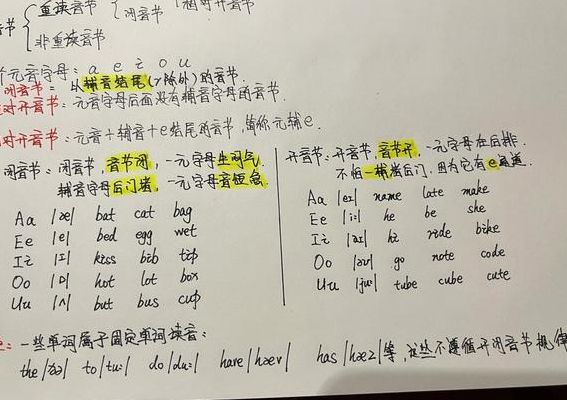 重读音节 闭音节 相对开音节
音节
非重读音节
个元音字母: a e i o u
闭音节: 以辅音结尾(r除外)的音节.
绝对开音节: 元音字母后面没有辅音字母的音节.
相对开音节: 元音+辅音+e结尾的音节, 简称元辅e.
闭音节: 闭音节, 音节闭, 一元字母生闷气.
辅音字母后门堵, 一元字母音短急.
Aa |æ| bat cat bag
Ee |e| bed egg wet
Ii |ɪ| kiss bib tip
Oo |ɒ| hot lot box
Uu |ʌ| but bus cup
开音节: 开音节, 音节开, 一元字母在后排.
不怕一辅堵后门, 因为它有e通道
Aa |eɪ| name late make
Ee |i:| he be she
Ii |aɪ| hi ride bike
Oo |əʊ| go note code
Uu |ju:| tube cube cute
: 一些单词属于固定单词读音:
the |ðə| to |tu:| do |du:| have |hæv| has |hæz| 等, 这些不遵循开闭音节规律